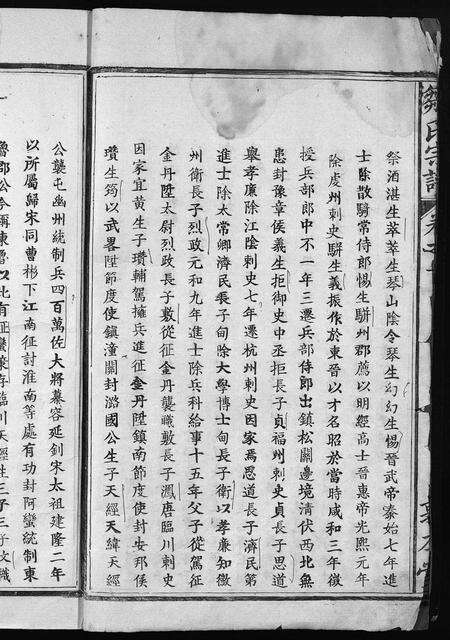 鄒氏宗譜
祭酒湛生萃萃生琴山陰令琴生幻幻生惕晉武帝泰始七年進
士除散騎常侍郎惕生駢州郡薦以明經高士晉惠帝先熙元年
除處州刺史駢生義振作於東晉以才名昭於當時咸和三年徵
授兵部郎中不一年三遷兵部侍郎出鎮松關邊境清伏西北無
患封豫章侯義生拒御史中丞拒長子貞福州刺史貞長子思道
舉孝廉除江陰刺史七年遷杭州刺史因家焉思道長子濟民第
進士除太常卿濟民長子甸除大學博士甸長子衛以孝廉知徵
州衛長子烈政元和九年進士除兵科給事十五年父子從駕征
金丹陞太尉烈政長子敷從征金丹襲職敷長子瀾唐臨川刺史
因家宜黃生子瓚輔駕擁兵進征金丹陞鎮南節度使封安邦侯
瓚生筠以武畧陞節度使鎮潼關封潞國公生子天經天緯天經
公襲屯幽州統制兵四百萬佐大將慕容延釗宋太祖建隆二年
以所屬歸宋同曹彬下江南征討淮南等處有功封阿蠻統制東